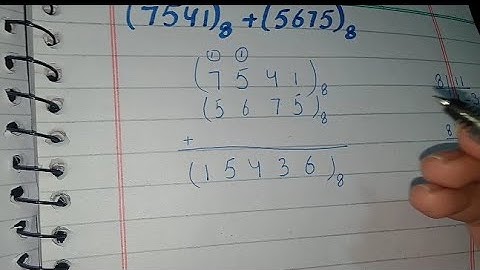 (7541)₈ + (5675)₈
① ①
(7 5 4 1)₈
(5 6 7 5)₈
+
(1 5 4 3 6)₈
8 11
8